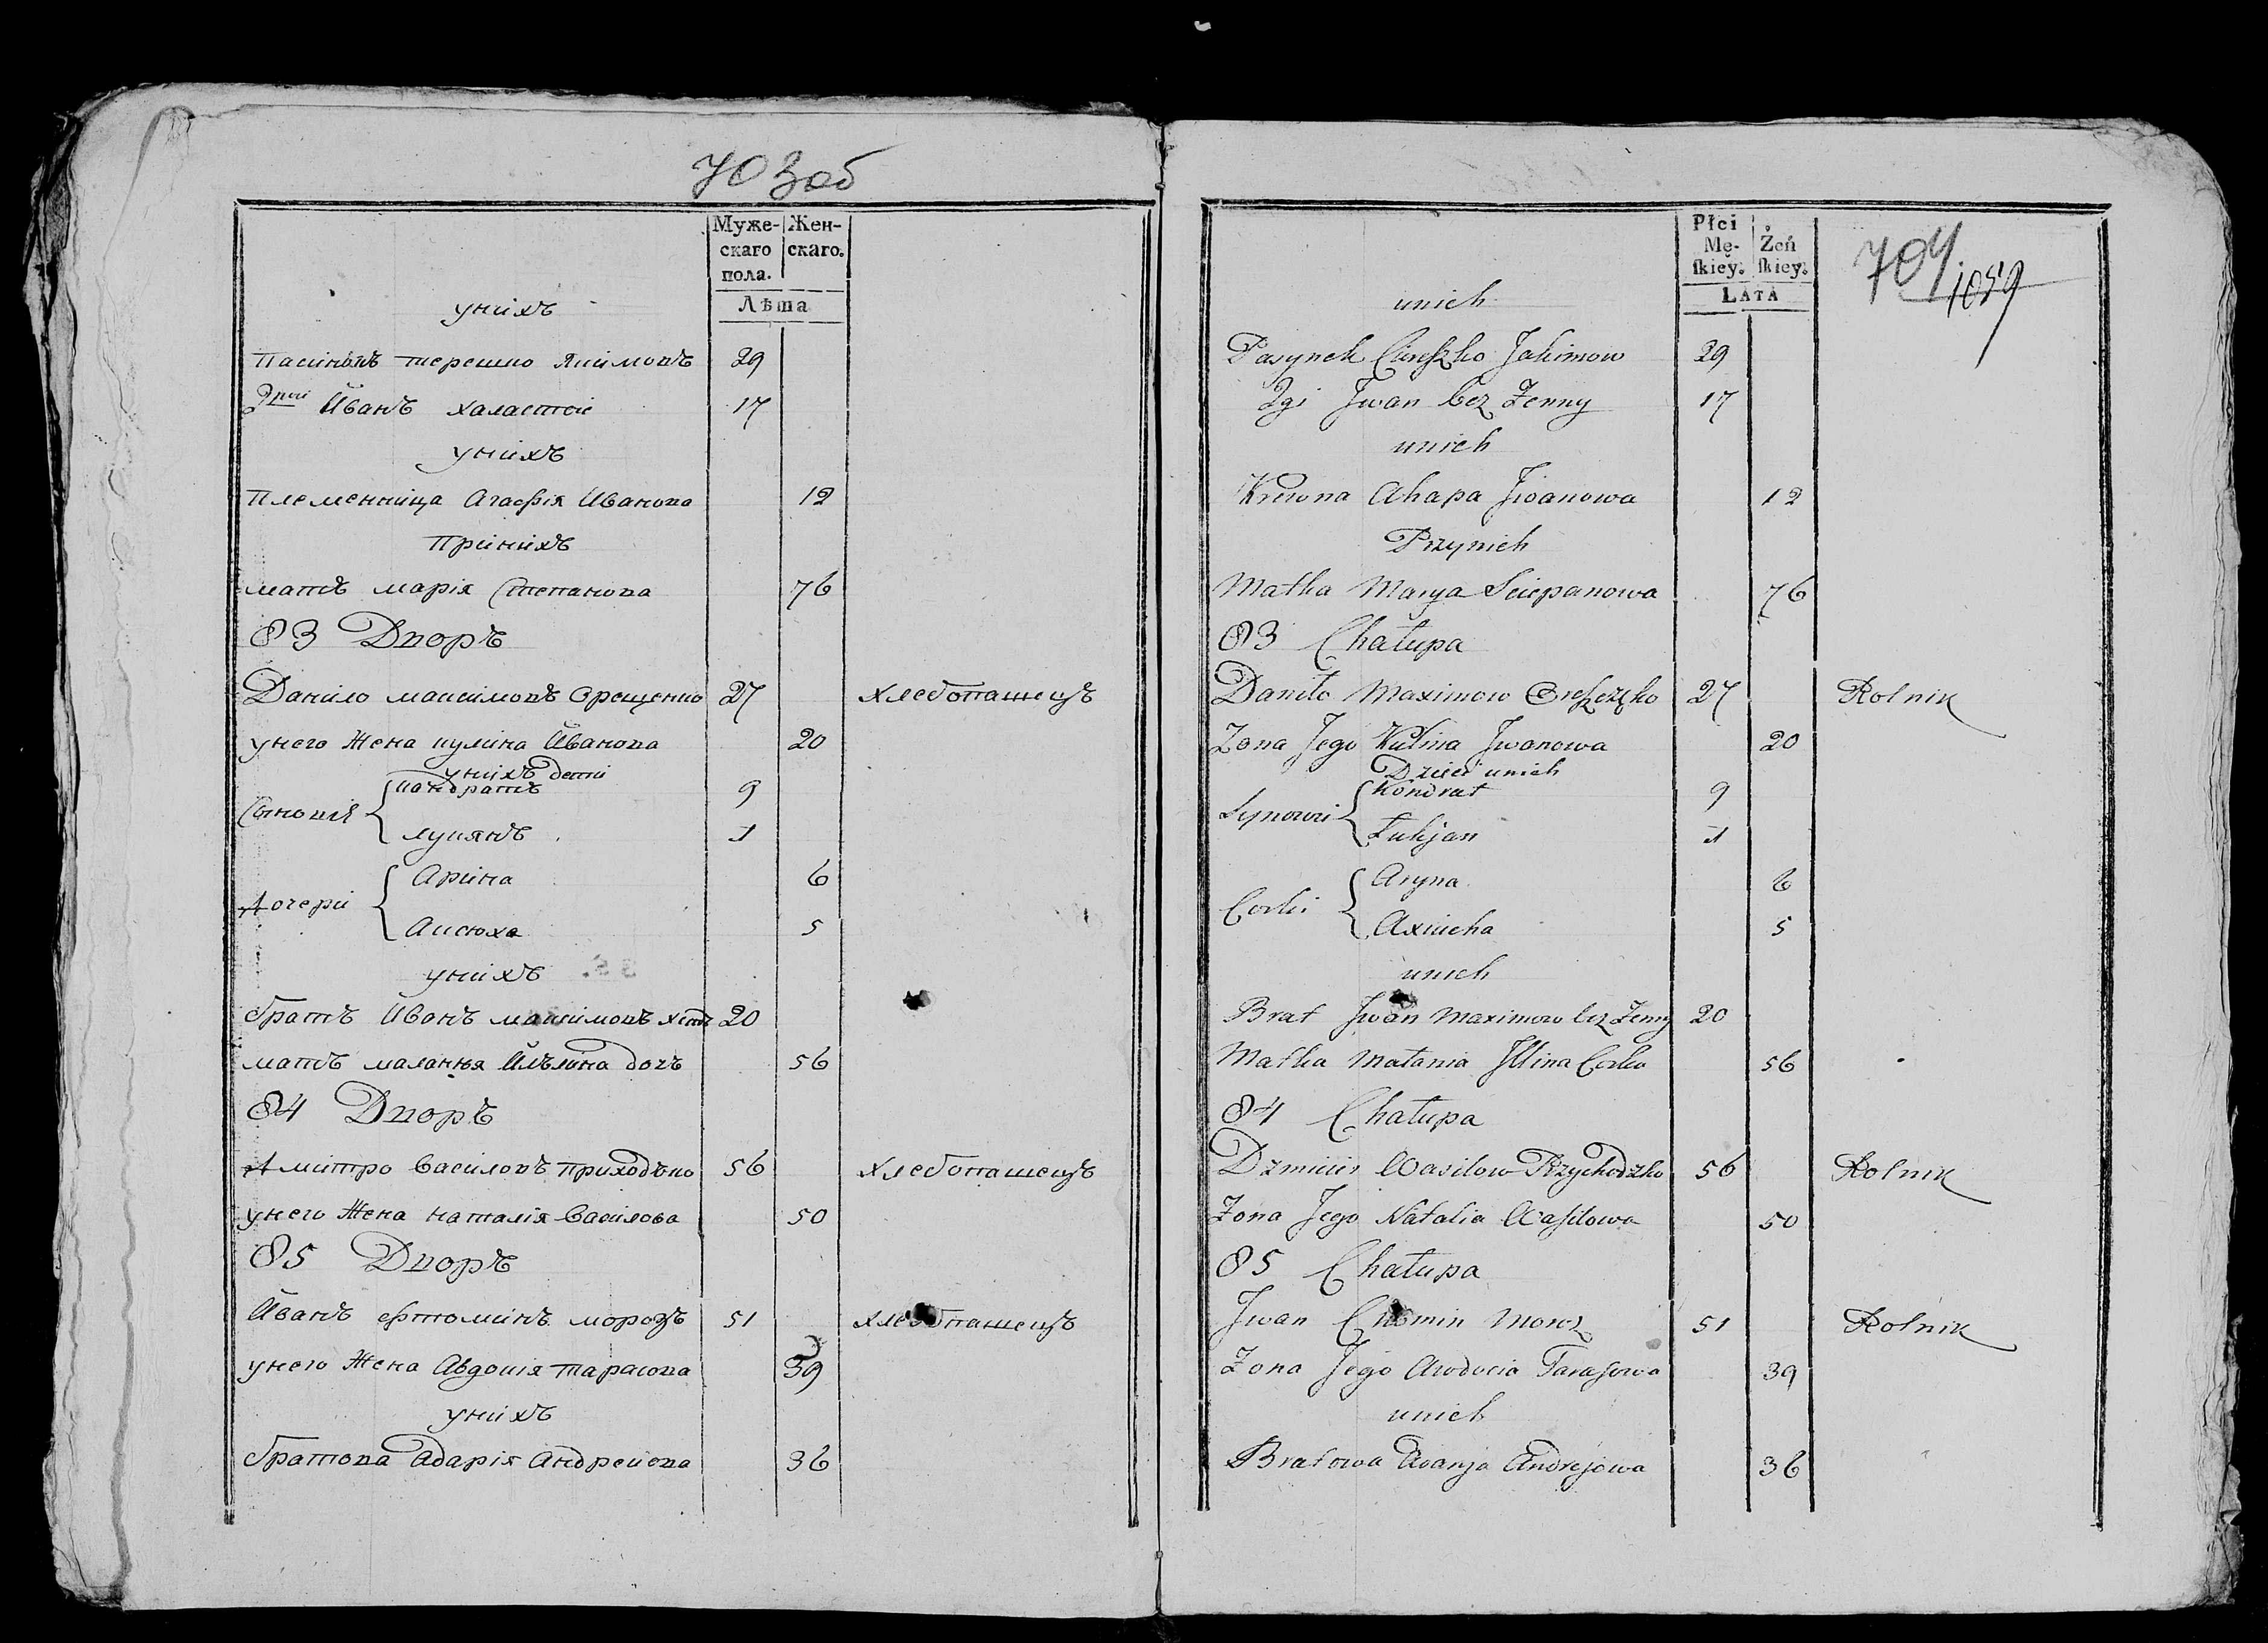 703 об
Муже-
скаго
пола.
Жен-
скаго.
Лѣта
унихъ
Пасинокъ терешко Якимовъ 29
2гой Иванъ халастой 17
унихъ
Племенница Агафія Иванова 12
Принихъ
мать марія Степанова 76
83 Дворъ
Данило максимовъ Орещенко 27 хлебопашецъ
унего Жена кулина Иванова 20
унихъ дети
Сыновія
кандратъ 9
лукянъ 1
Дочери
Арина 6
Аксюха 5
унихъ
братъ Иванъ максимовъ 20
мать маланія Ильина дочъ 56
84 Дворъ
Дмитро Василовъ приходько 56 хлебопашецъ
унего Жена наталія Васиlова 50
85 Дворъ
Иванъ фтоминъ морозъ 51 хлебопашецъ
унего Жена Авдокія тарасова 39
унихъ
братова Адарія Андреиова 36
Płci
Mę-
ſkiey.
Żeń
ſkiey.
LATA
704
1059
unich
Pasynek Jakimow 29
2gi Jwan bez Zenny 17
unich
Krewna Ahapa Jwanowa 12
Przynich
Matka Marya Sciepanowa 76
83 Chałupa
Daniło Maximow 27 Rolnik
Zona Jego Kulina Jwanowa 20
Dzieci unich
Synowi
Kondrat 9
Łukjan 1
Corki
Aryna 6
Axiucha 5
unich
Brat Jwan Maximow bez Zenny 20
Matka Małania Jllina Corka 56
84 Chałupa
Dzmicier Wasilow Przychodzko 56 Rolnik
Zona Jego Natalia Waſilowa 50
85 Chałupa
Jwan Chomin Moroz 51 Rolnik
Zona Jego Awdocia Taraſowa 39
unich
Bratowa Adarja Andrejowa 36